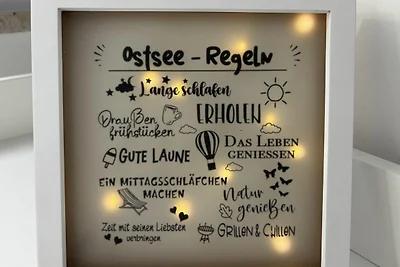 Ostsee - Regeln
Lange schlafen
Draußen
frühstücken
ERHOLEN
GUTE LAUNE
DAS LEBEN
GENIESSEN
EIN MITTAGSSCHLÄFCHEN
MACHEN
Natur
genießen
Zeit mit seinen Liebsten
verbringen
GRILLEN & CHILLEN